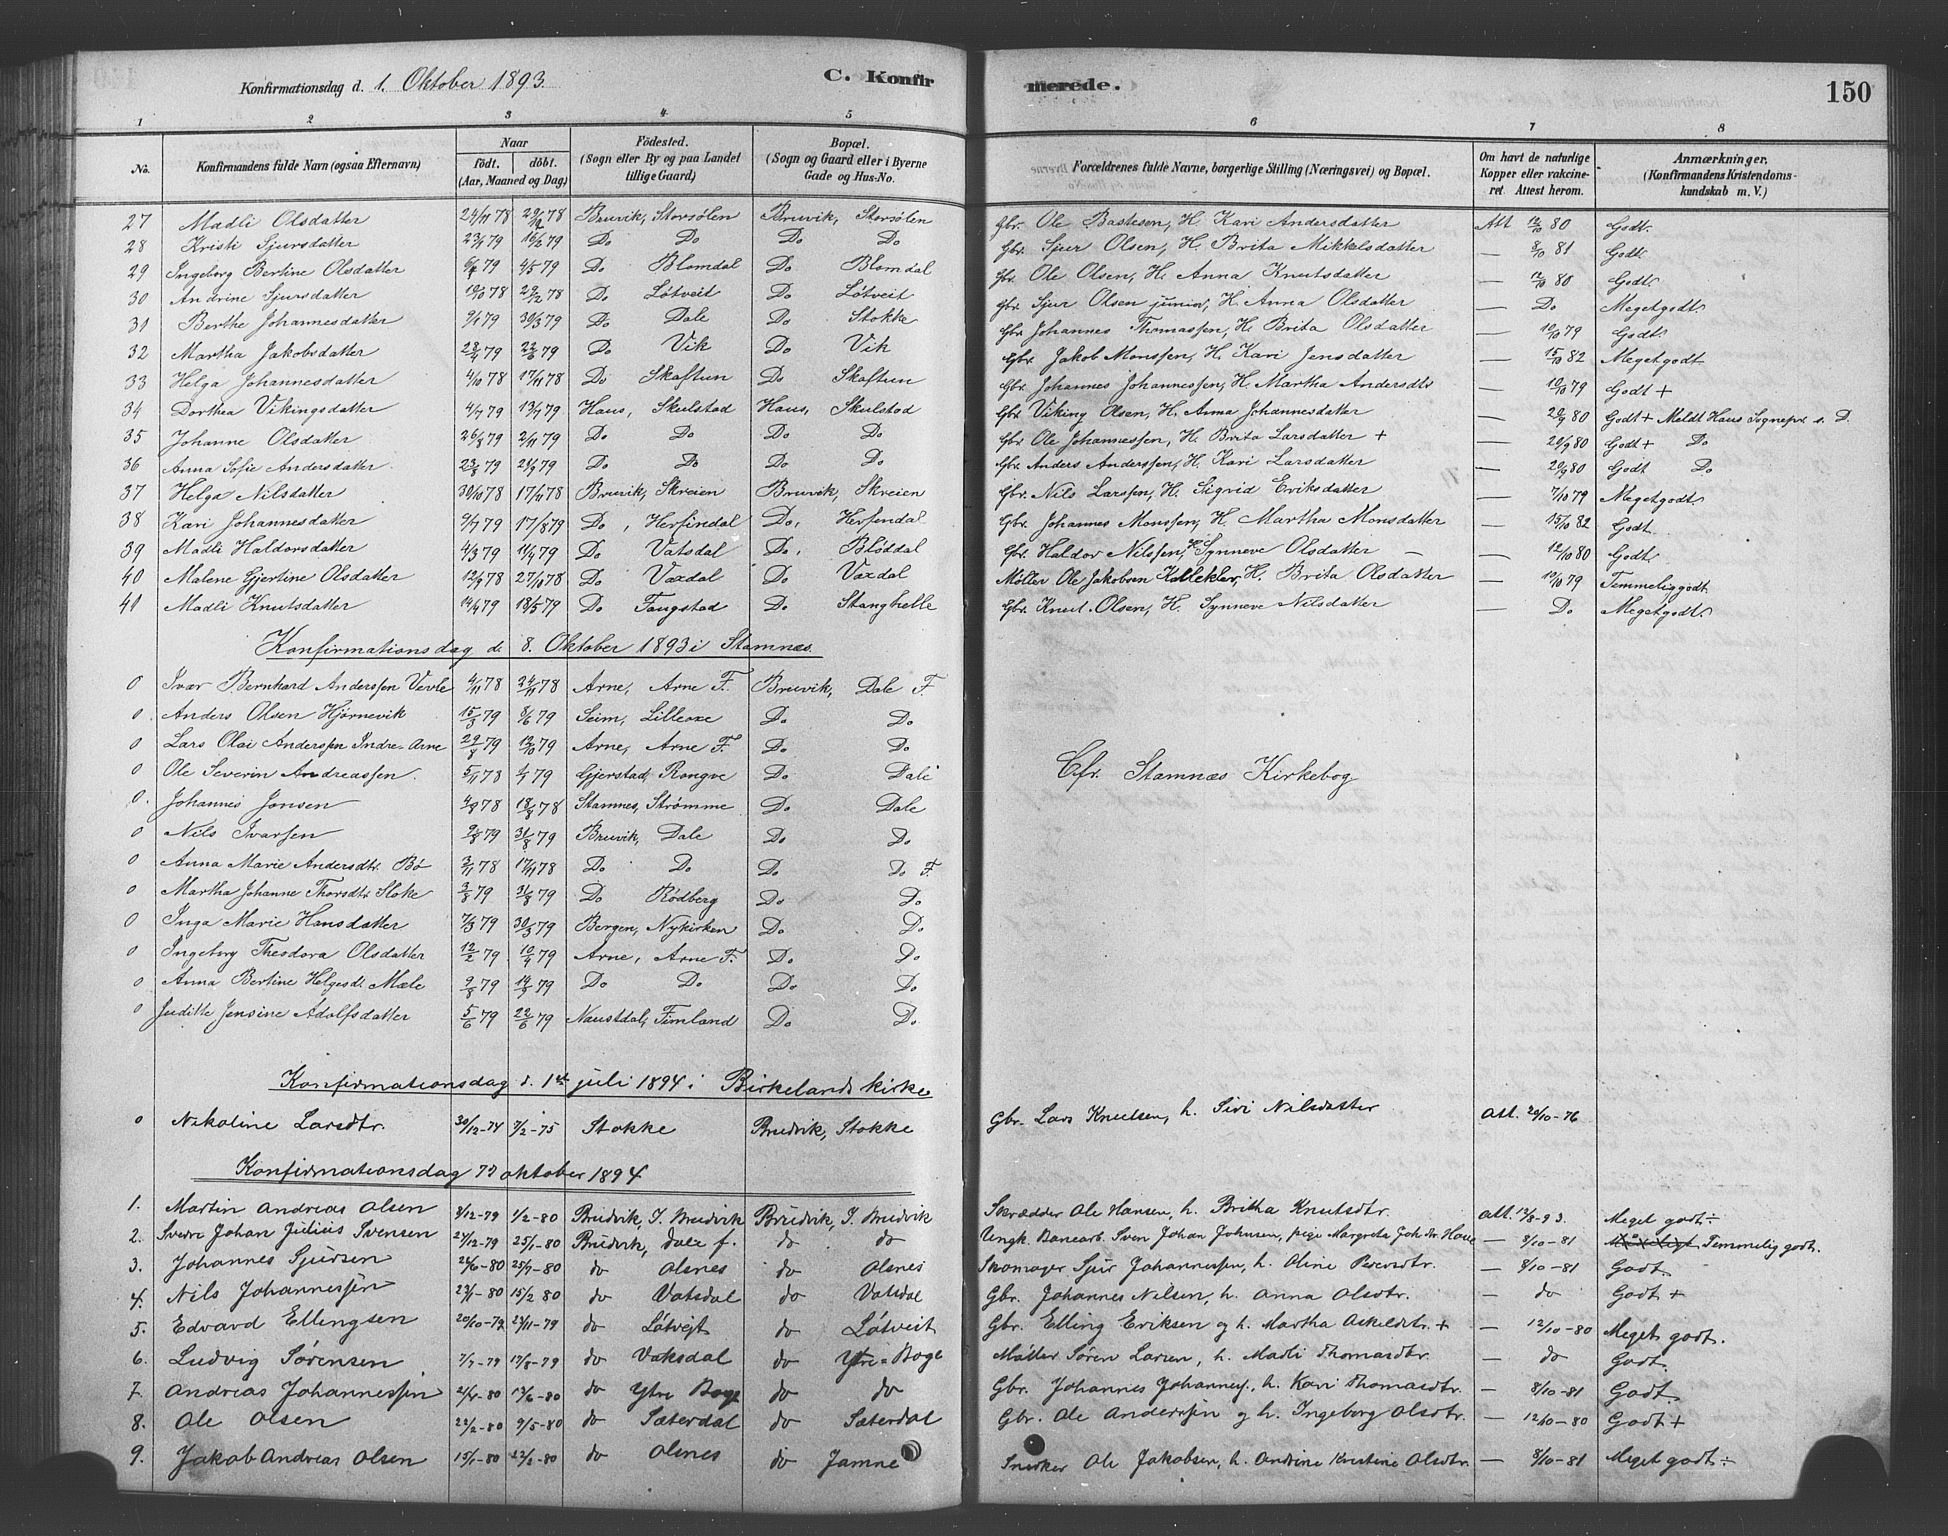 Konfirmationsdag d. 1. Oktober 1893. C. Konfirmerede. 150
1 2 3 4 5 6 7 8
No. Konfirmandens fulde Navn (ogsaa Efternavn) Naar födt. döbt. (Aar, Maaned og Dag) Födested. (Sogn eller By og paa Landet tillige Gaard) Bopæl. (Sogn og Gaard eller i Byerne Gade og Hus-No. Forældrenes fulde Navne, borgerlige Stilling (Næringsvei) og Bopæl. Om havt de naturlige Kopper eller vakcineret. Attest herom. Anmærkninger. (Konfirmandens Kristendomskundskab m. V.)
27 Madli Olsdatter 24/11 78 29/12 78 Bruvik, Storsölen Bruvik, Storsölen Gbr. Ole Bastesen, H. Kari Andersdatter Att 12/10 80 Godt.
28 Kristi Sjursdatter 23/1 79 16/2 79 Do Do Do Do Gbr. Sjur Olsen, H. Brita Mikkelsdatter — 8/10 81 Godt.
29 Ingeborg Bertine Olsdatter 79 4/5 79 Do Blomdal Do Blomdal Gbr. Ole Olsen, H. Anna Knutsdatter — 12/10 80 Godt.
30 Andrine Sjursdatter 19/10 78 29/12 78 Do Lötveit Do Lötveit Gbr. Sjur Olsen junior, H. Anna Olsdatter — Do Megetgodt.
31 Berthe Johannesdatter 9/1 79 30/3 79 Do Dale Do Stokke Gbr. Johannes Thomassen, H. Brita Olsdatter — 10/10 79 Godt.
32 Martha Jakobsdatter 79 79 Do Vik Do Vik Gbr. Jakob Monssen, H. Kari Jensdatter — 15/10 82 Megetgodt
33 Helga Johannesdatter 4/10 78 17/11 78 Do Skaftun Do Skaftun Gbr. Johannes Johannessen, H. Martha Andersdtr — 10/10 79 Godt +
34 Dorthea Vikingsdatter 4/7 79 13/7 79 Haus, Skulstad Haus, Skulstad Gbr. Viking Olsen, H. Anna Johannesdatter — 20/9 80 Godt + Meldt Haus Sognepr. s. D.
35 Johanne Olsdatter 26/8 79 2/11 79 Do Do Do Do Gbr. Ole Johannessen, H. Brita Larsdatter + — 20/9 80 Godt + Do
36 Anna Sofie Andersdatter. 23/8 79 79 Do Do Do Do Gbr. Anders Anderssen, H. Kari Larsdatter — 20/9 80 Godt Do
37 Helga Nilsdatter 30/10 78 17/11 78 Bruvik, Skreien Bruvik, Skreien Gbr. Nils Larssen, H. Sigrid Eriksdatter — 7/10 79 Megetgodt.
38 Kari Johannesdatter 9/7 79 17/8 79 Do, Herfindal Do, Herfendal Gbr. Johannes Monssen, H. Martha Monsdatter — 15/10 82 Godt.
39 Madli Haldorsdatter 4/3 79 11/4 79 Do Vatsdal Do, Blöddal Gbr. Haldor Nilssen, H. Synneve Olsdatter — — 12/10 80 Godt.
40 Malene Gjertine Olsdatter 12/9 78 27/10 78 Do Vaxdal Do Vaxdal Möller Ole Jakobsen Kalleklev, H. Brita Olsdatter — 10/10 79 Temmeliggodt
41 Madli Knutsdatter 14/4 79 18/5 79 Do Fangstad Do Stanghelle Gbr. Knut Olsen, H. Synneve Nilsdatter — Do Megetgodt.
Konfirmationsdag d. 8. Oktober 1893 i Stamnæs.
0 Ivar Bernhard Anderssen Verle 4/11 78 24/11 78 Arne, Arne F. Bruvik, Dale F
0. Anders Olsen Hjörnevik 15/3 79 8/6 79 Seim, Do Do
0 Lars Olai Anderssen Indre-Arne 29/8 79 12/10 79 Arne, Arne F. Do Do
0 Ole Severin Andreassen. 5/11 78 79 Gjerstad, Rongve Do Dale Cfr. Stamnæs Kirkebog
0. Johannes Jonsen 78 18/8 78 Stamnes, Strömme Do Dale
0 Nils Ivarsen 79 31/8 79 Bruvik, Dale Do Do
0 Anna Marie Andersdtr. Bö 3/11 78 17/11 78 Do Do Do Do F.
0 Martha Johanne Thorsdtr Stoke 79 31/8 79 Do Rödberg Do Do
0 Inga Marie Hansdatter 7/3 79 30/3 79 Bergen, Nykirken Do Do
0 Ingeborg Theodora Olsdatter 12/2 79 79 Arne, Arne F. Do Do
0 Anna Bertine Helgesdt. Mæle 79 79 Do Do Do Do
0 Juditte Jensine Adolfsdatter 5/6 79 22/6 79 Naustdal, Fimland Do Do
Konfirmationsdag d. 1ste juli 1894 i Birkelands kirke
0 Nikoline Larsdtr. 30/12-74 7/2-75 Stokke Bruvik, Stokke Gbr. Lars Knutsen, h. Siri Nilsdatter att. 20/10-76
Konfirmationsdag 7de oktober 1894
1. Martin Andreas Olsen 8/12-79 1/2-80 Bruvik, I. Bruvik Bruvik, I. Bruvik Skrædder Ole Hansen, h. Britha Knutsdtr. att. 93. Meget godt ÷
2. Sverre Johan Julius Svensen 27/12-79 25/1-80 Bruvik, Dale f. do do Ungk. Banearb. Sven Johan Johnsen, pige Margreta Joh.dtr. — 8/10-81 Temmelig godt.
3. Johannes Sjursen 24/6-80 25/7-80 do Olsnes do Olsnes Skomager Sjur Johannessen, h. Oline Pedersdtr. — 8/10-81 Godt.
4. Nils Johannessen 23/1-80 15/2 80 do Vatsdal do Vatsdal Gbr. Johannes Nilsen, h. Anna Olsdtr. — do Godt +
5. Edvard Ellingsen 20/10-79 23/11-79 do Lötveit do Lötveit Gbr. Elling Eriksen og h. Martha Askeldtr. + — 12/10-80 Meget godt.
6. Ludvig Sörensen 7/7-79 17/8-79 do Vaksdal do Ytre-Boge Möller Sören Larsen, h. Madli Thomasdtr. — do Godt.
7. Andreas Johannessen 2/4-80 13/6-80 do Ytre Boge do do Gbr. Johannes Johannes., h. Kari Thomasdtr. — 8/10-81 Godt
8. Ole Olsen 22/2-80 9/5-80 do Sæterdal do Sæterdal Gbr. Ole Anderssen og h. Ingeborg Olsdtr. — 12/10-80 Godt +
9. Jakob Andreas Olsen 15/1-80 22/2-80 do Olsnes do Jamne Snedker Ole Jakobsen, h. Andrine Kristine Olsdtr. — 8/10-81 Meget godt ÷